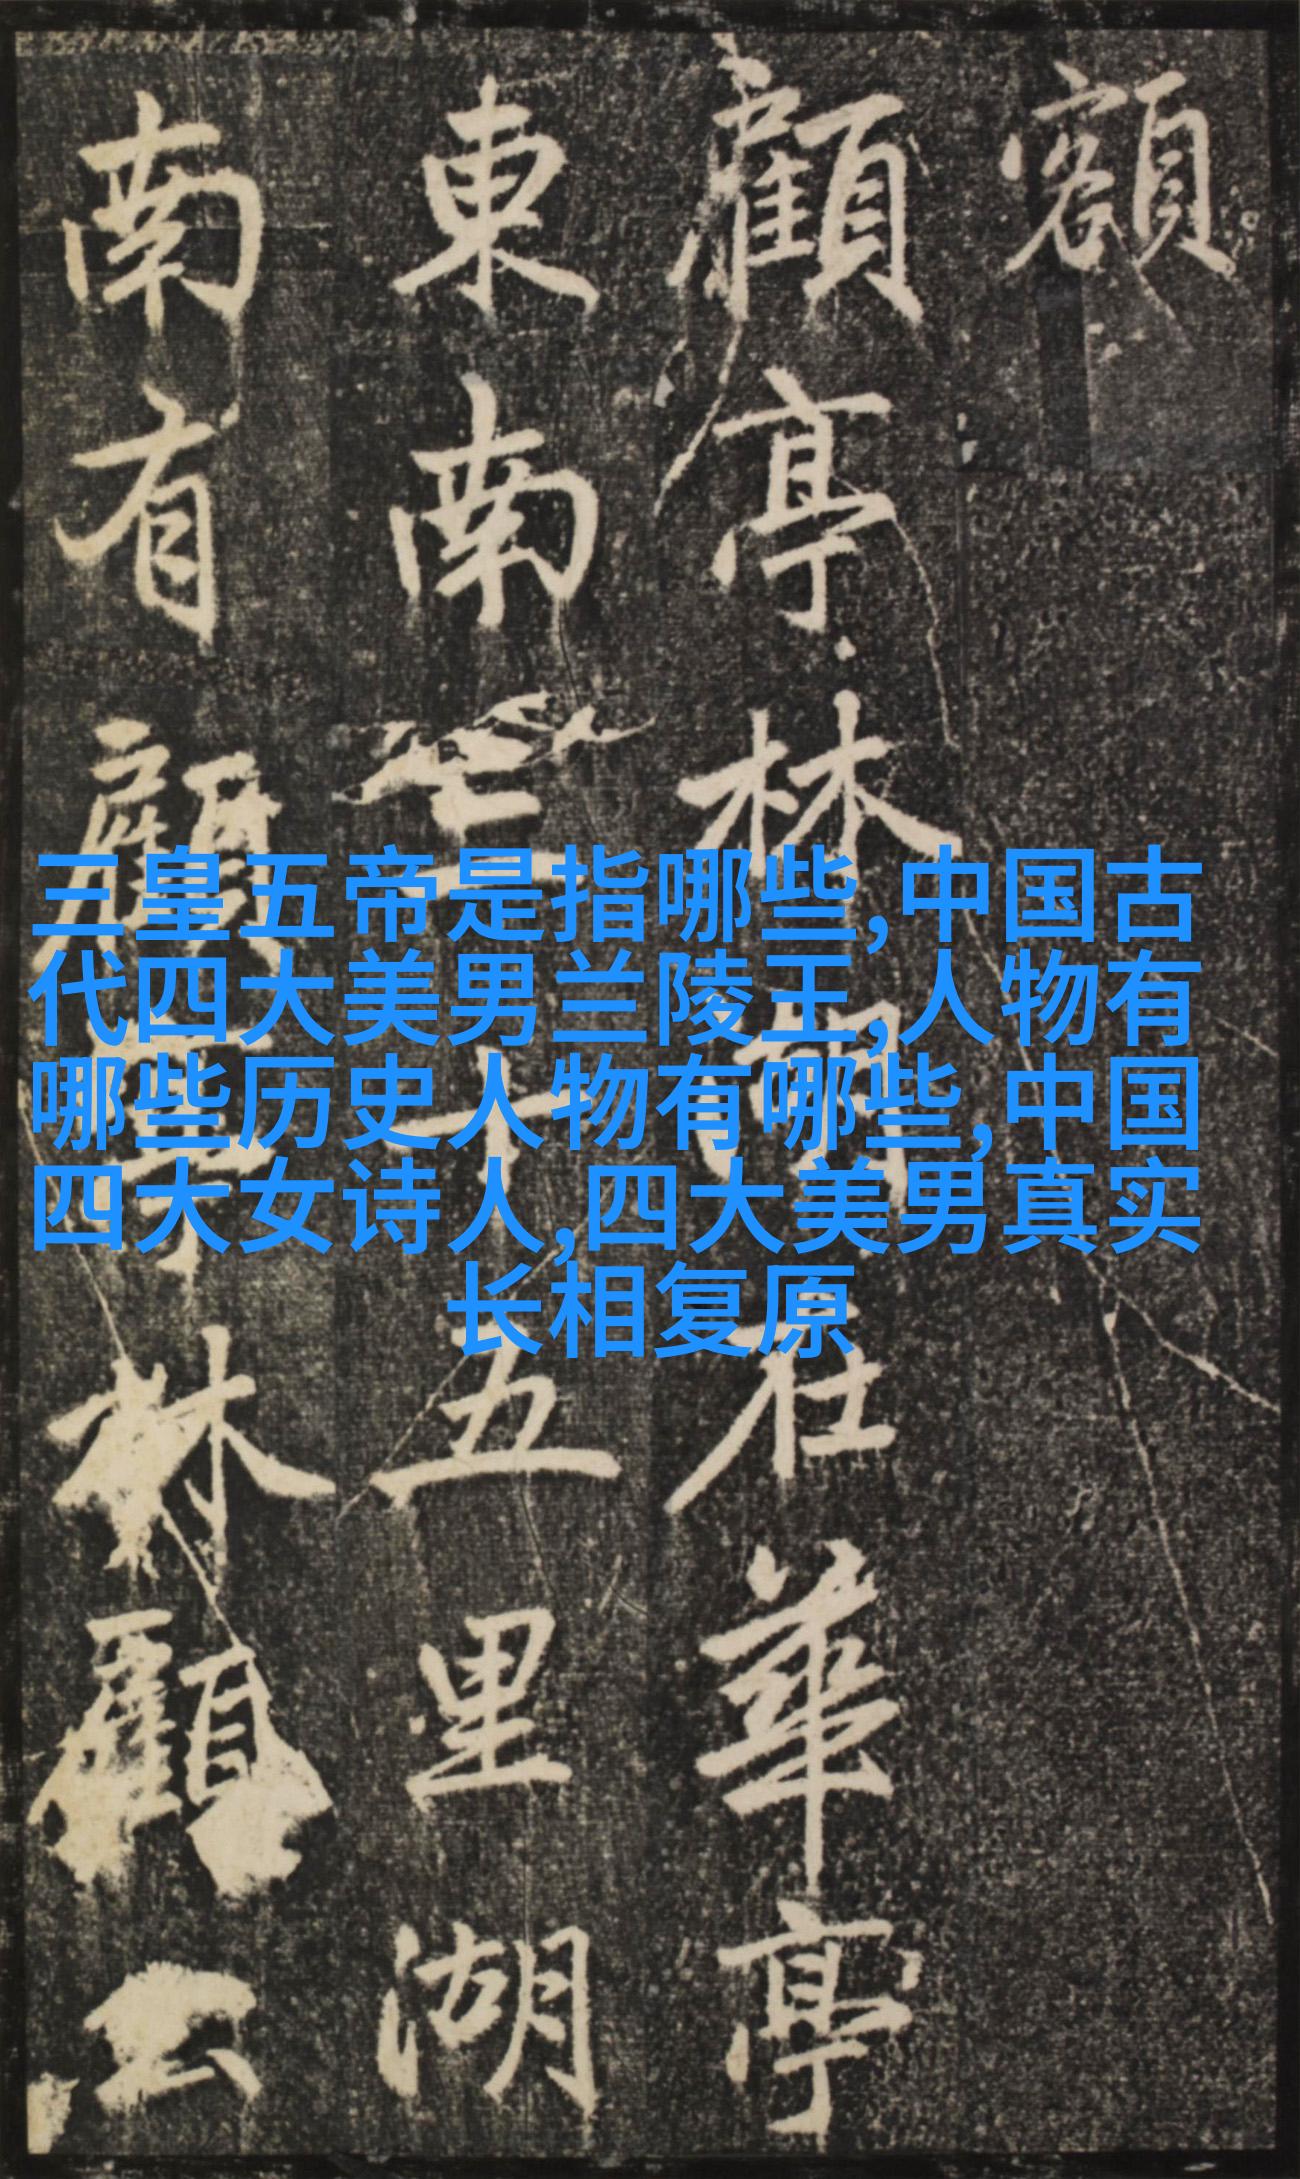 額
顧亭林在華亭
東南三十五里湖
南有顧林顧公
三皇五帝是指哪些,中国古
代四大美男兰陵王,人物有
哪些历史人物有哪些,中国
四大女诗人,四大美男真实
长相复原